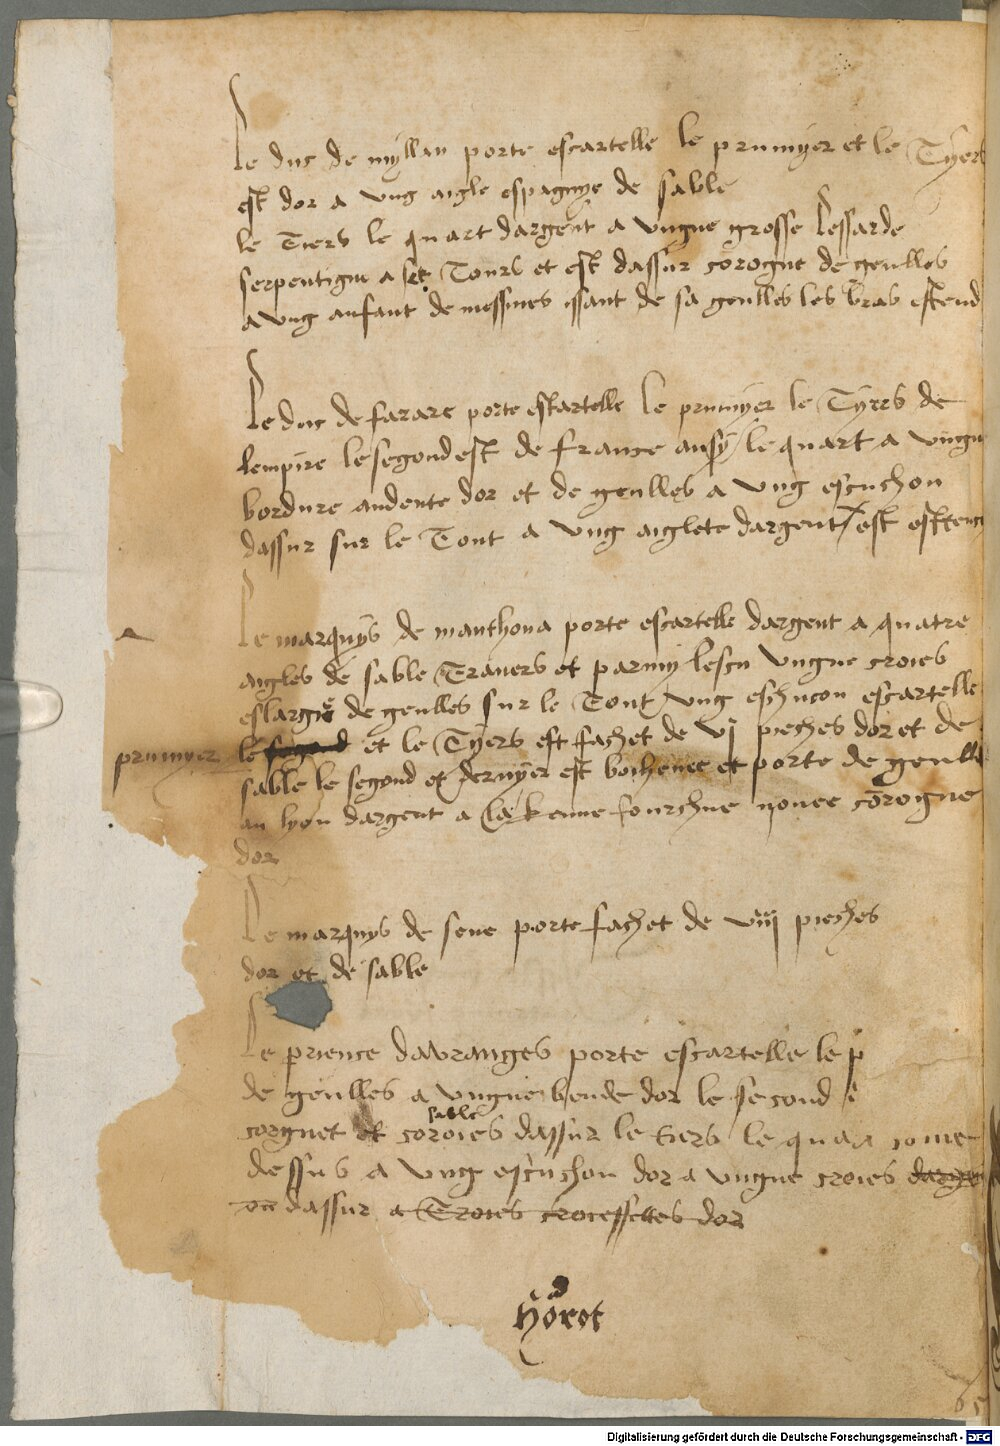 Le duc de myllan porte escartelle le prumyer et le Tyers
est dor a ung aigle espagnye de sable
le Tiers le quart dargent a ungne grosse lessarde
serpentigne a set Tours et est dassur corogne de geulles
a ung anfant de messines issant de sa geulles les bras estend
Le duc de farare porte escartelle le prumyer le Tyers de
lempire le segond est de france ansy le quart a ungne
bordure andente dor et de geulles a ung escuchon
dassur sur le Tout a ung aiglete dargent est estend
Le marquys de manthoua porte escartelle dargent a quatre
aigles de sable Travers et parmy lescu ungne croies
eslargie de geulles sur le Tout ung eschucon escartelle
prumyer
le segond et le Tyers est fachet de vj pieches dor et de
sable le segond et dernyer est bocheme et porte de geulle
au lyon dargent a la keuue fourchue nouee corogne
dor
Le marquys de seue porte fachet de viij pieches
dor et de sable
Le prience davranges porte escartelle le p
de geulles a ungne bende dor le second
sable
corgnet et coroies dassur le tiers le qua come
dessus a ung escuchon dor a ungne croies darge
on dassur a Troies croiessettes dor
Hórot
Digitalisierung gefördert durch die Deutsche Forschungsgemeinschaft - DFG